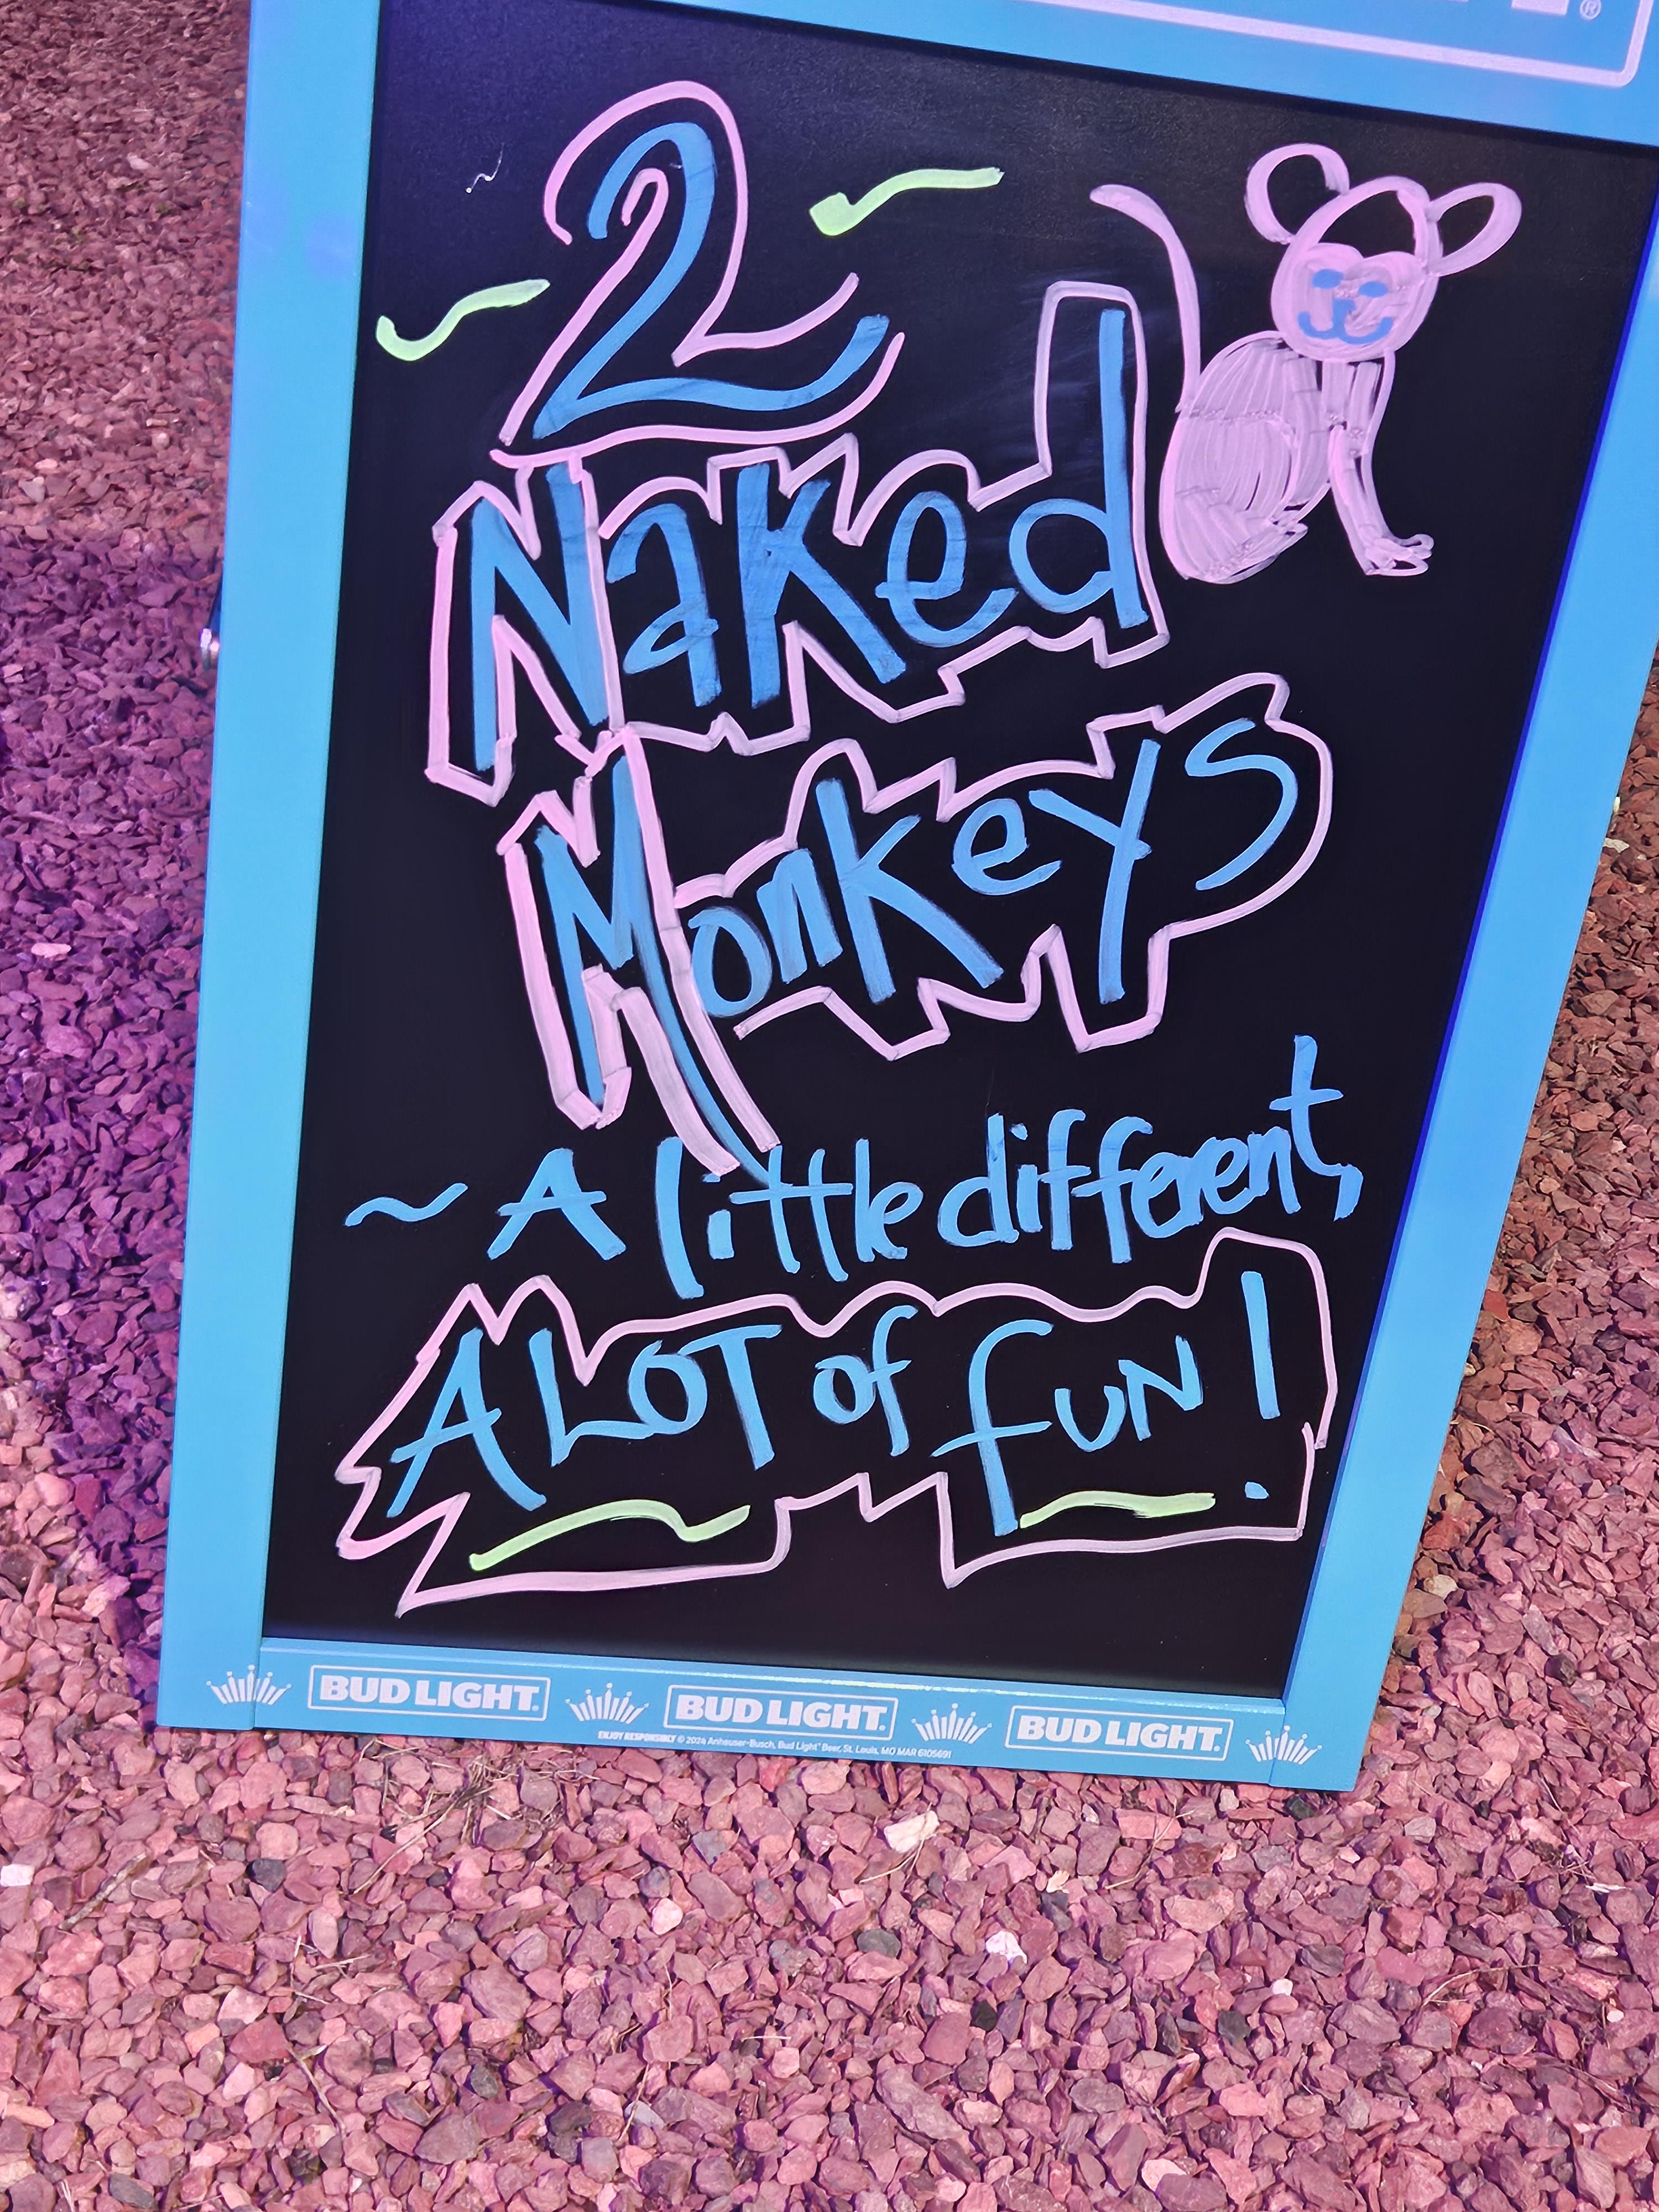 ®
2
Naked
Monkeys
~ A little different,
A LOT of fUN!
BUD LIGHT. BUD LIGHT. BUD LIGHT.
ENJOY RESPONSIBLY © 2024 Anheuser-Busch, Bud Light® Beer, St. Louis, MO MAR 6105691